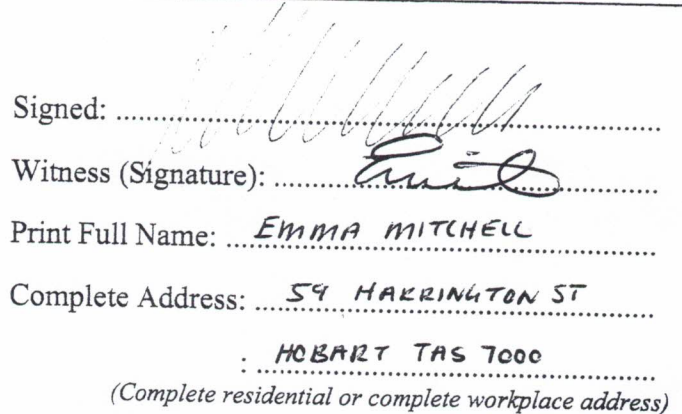 Signed:
Witness (Signature):
Print Full Name: EMMA MITCHELL
Complete Address: 59 HARRINGTON ST
: HOBART TAS 7000
(Complete residential or complete workplace address)